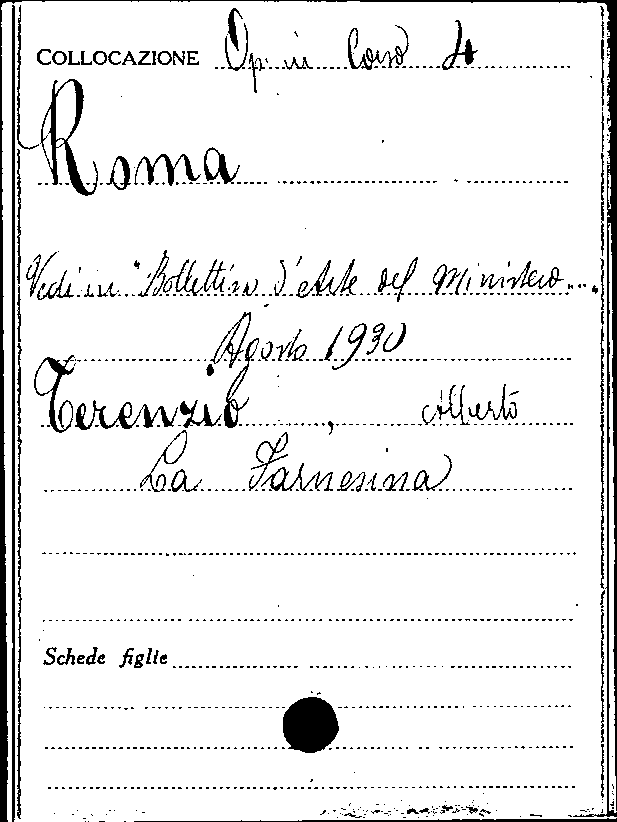 COLLOCAZIONE Op. in Corso 4
Roma
Vedi in "Bollettino d'Arte del Ministero....
Agosto 1930
Terenzio, Alberto
La Farnesina
Schede figlie